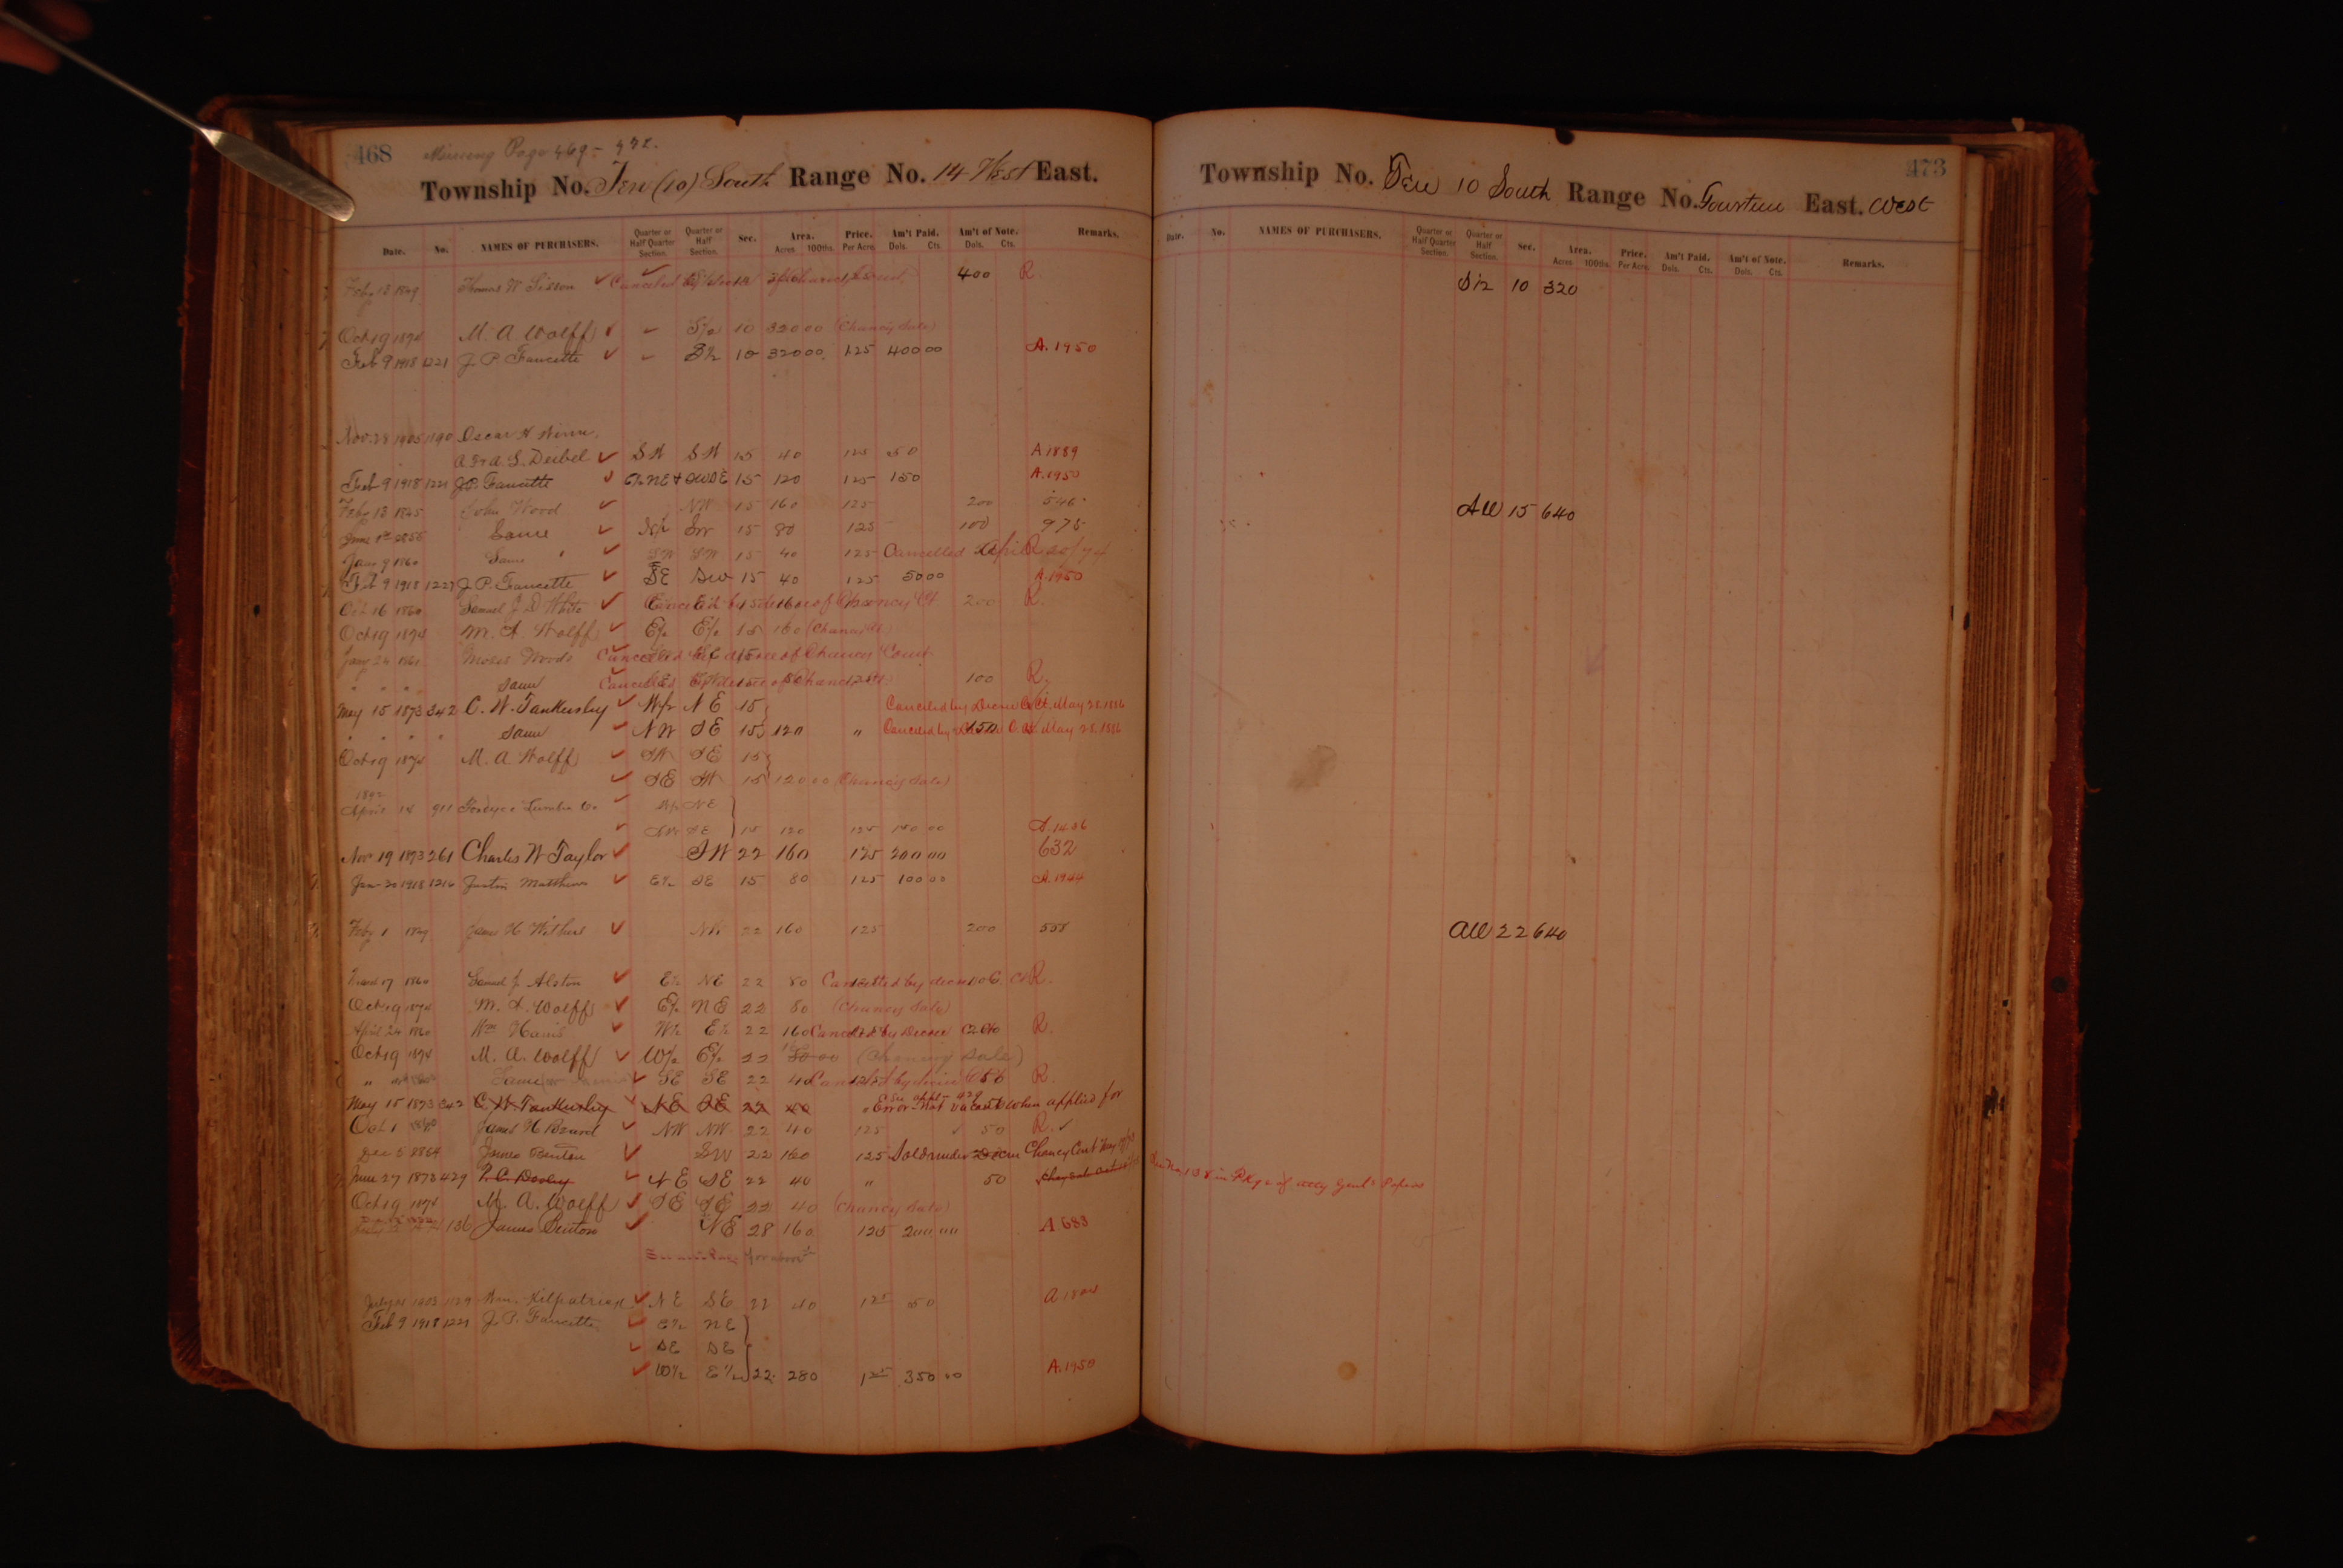 468 Missing Page 469-472.
Township No. Ten (10) South Range No. 14 West East.
Date. No. NAMES OF PURCHASERS. Quarter or Half Quarter Section. Quarter or Half Section. Sec. Area. Acres 100ths. Price. Per Acre Am't Paid. Dols. Cts. Am't of Note. Dols. Cts. Remarks.
Feby 13 1849 Thomas W Sisson ✓ Canceled by 400 R.
Oct 19 1874 M. A. Wolff ✓ S/2 10 320 00 (Chancy Sale)
Feb 9 1918 1221 J. P. Faucette ✓ S½ 10 320 00 1.25 400 00 A. 1950
Nov. 28 1905 1190 Oscar A
A. F & A. S. Deibel ✓ SW SW 15 40 125 50 A 1889
Feb 9 1918 1221 J.P. Faucette ✓ NE & SWSE 15 120 125 150 A. 1950
Feby 13 1845 John Wood NW 15 160 125 200 546
June Same ✓ N½ SW 15 80 125 100 975
Jany 9 1860 Same ✓ SW SW 15 40 125 Cancelled
Feb 9 1918 1227 J. P. Faucette ✓ SE SW 15 40 125 50 00 A. 1950
Oct 16 1860 Samuel J. D White ✓ Canceled by decree of Chancy Ct 200 R.
Oct 19 1874 M. A. Wolff ✓ E/2 E/2 15 160 (Chancy
Jany 24 1861 Moses Woods Canceled by decree of Chancy Court
" " " Same Canceled by decree of Chancy 100 R.
May 15 1873 342 C. W. Tankersley ✓ W/2 NE 15 Canceled by Decree C. Ct. May 28. 1886
" " " " Same ✓ NW SE 15 120 " Canceled by 150 C. Ct. May 28. 1886
Oct 19 1874 M. A. Wolff ✓ SW SE 15
✓ SE SW 15 120 00 (Chancy Sale)
1892
April 14 911 Fordyce Lumber Co. ✓ W½ NE
✓ NW SE 15 120 125 150 00 A. 1406
Nov 19 1873 261 Charles W Taylor ✓ SW 22 160 125 200 00 632
Jan 30 1918 1216 Justin Matthews ✓ E½ SE 15 80 125 100 00 A. 1944
Feby 1 1849 James H ✓ NW 22 160 125 200 558
17 1860 Samuel J. Alston ✓ E½ NE 22 80 Canceled by decree C Ct R.
Oct 19 1874 M. A. Wolff ✓ E/2 NE 22 80 (Chancy Sale)
April 24 1860 Wm Harris ✓ W½ E½ 22 160 Canceled by Decree 200 R.
Oct 19 1874 M. A. Wolff ✓ W/2 E/2 22 (Chancy Sale)
" Same ✓ SE SE 22 40 Canceled by R.
See appl- 429
May 15 1873 342 C W Tankersley ✓ NE SE 22 40 " Error - Not vacant when applied for
Oct 1 James H ✓ NW NW 22 40 125 ✓ 50 R. ✓
Dec 5 James Benton ✓ SW 22 160 125 Sold under Decree Chancy Court
June 27 1873 429 ✓ NE SE 22 40 " 50
Oct 19 1874 M. A. Wolff ✓ SE SE 22 40 (Chancy Sale)
136 James Benton ✓ NE 28 160 125 200 00 A 683
for above
July 1903 1129 Wm. Kilpatrick ✓ NE SE 22 40 125 50
Feb 9 1918 1221 J. P. Faucette ✓ E½ NE
✓ SE SE
✓ W½ E½ 22 280 125 350 00 A. 1950
473
Township No. Ten 10 South Range No. Fourteen East. West
Date. No. NAMES OF PURCHASERS. Quarter or Half Quarter Section. Quarter or Half Section. Sec. Area. Acres 100ths. Price. Per Acre. Am't Paid. Dols. Cts. Am't of Note. Dols. Cts. Remarks.
S½ 10 320
All 15 640
All 22 640